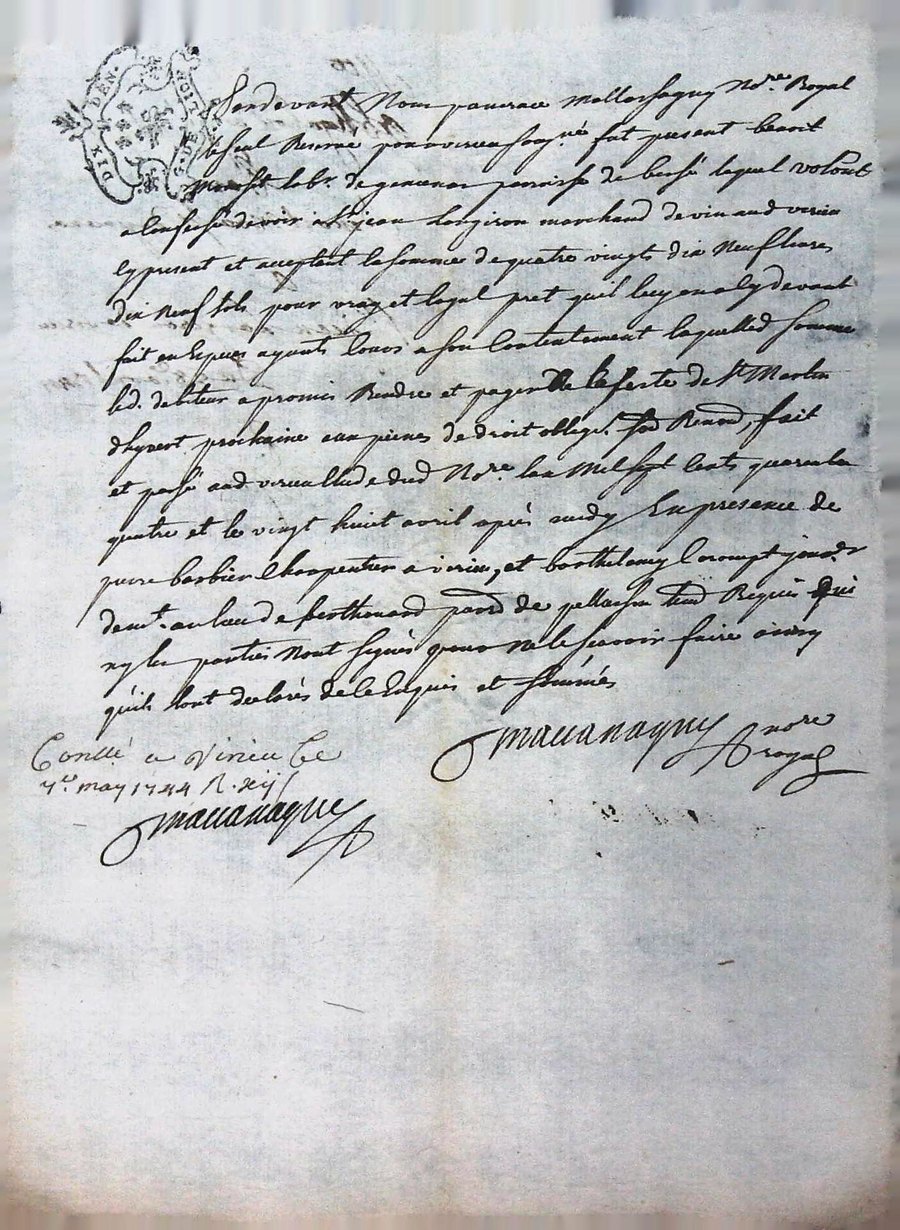 DIX DEN.
Pardevant Nous pancrace Notre Royal
Reservé pour virieu soussigné fut present benoit
labr. de paroisse de laquel volont
a Confessé devoir a Sr jean Longiron marchand de vin aud virieu
Cy present et acceptant la somme de quatre vingts dix Neuf livres
dix Neuf sols pour vray et Loyal pret quil luy en a Cy devant
fait en Especes ayants Cours a son Contentement laquelle d Somme
led. debiteur a promis Rendre et payer de la feste de St Martin
dhyvert prochaine aux peines de droit obligs. Renond, fait
et passé aud virieu Etude dud Nore. lan Mil sept Cents quarante
quatre et le vingt huit avril après midy En presence de
pierre barbier Charpentier a virieu, et barthelemy
demt. au lieu de parrd de pellassin Requis qui
ny les parties Nont signés pour ne le sçavoir faire ainsy
quils lont declarés de ce Enquis et sommés
nore
royal
Conllé a Virieu Ce
7e. may 1744 R. xij s